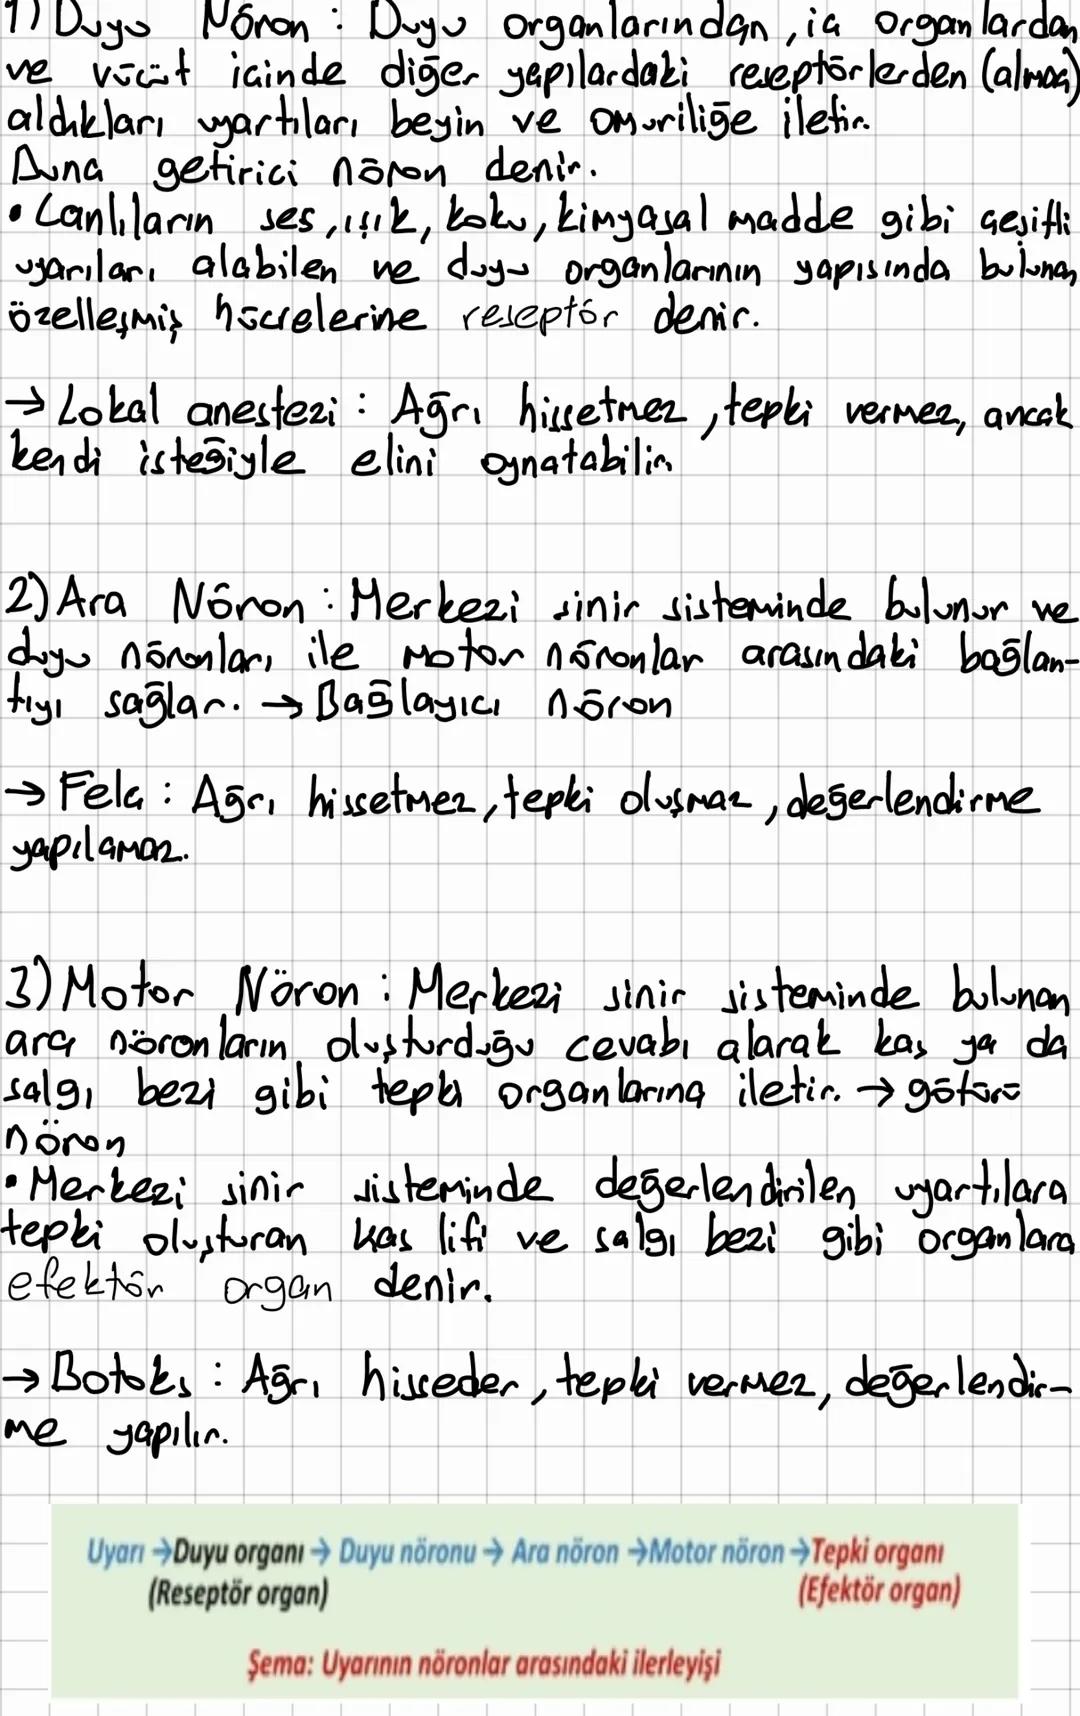 1) Duyu Nöron : Duyu organlarından, iç organlardan
ve vücüt içinde diğer yapılardaki reseptörlerden (almaç)
aldıkları uyartıları beyin ve omuriliğe iletir.
Buna getirici nöron denir.
• Canlıların ses, ışık, koku, kimyasal madde gibi çeşitli
uyarıları alabilen ve duyu organlarının yapısında bulunan
özelleşmiş hücrelerine reseptör denir.
→ Lokal anestezi : Ağrı hissetmez, tepki vermez, ancak
kendi isteğiyle elini oynatabilir.
2) Ara Nöron : Merkezi sinir sisteminde bulunur ve
duyu nöronları ile motor nöronlar arasındaki bağlan-
tıyı sağlar. → Bağlayıcı nöron
→ Felç : Ağrı hissetmez, tepki oluşmaz, değerlendirme
yapılamaz.
3) Motor Nöron : Merkezi sinir sisteminde bulunan
ara nöronların oluşturduğu cevabı alarak kas ya da
salgı bezi gibi tepki organlarına iletir. → götürü
nöron
• Merkezi sinir sisteminde değerlendirilen uyartılara
tepki oluşturan kas lifi ve salgı bezi gibi organlara
efektör organ denir.
→ Botoks : Ağrı hisseder, tepki vermez, değerlendir-
me yapılır.
Uyarı → Duyu organı → Duyu nöronu → Ara nöron → Motor nöron → Tepki organı
(Reseptör organ) (Efektör organ)
Şema: Uyarının nöronlar arasındaki ilerleyişi